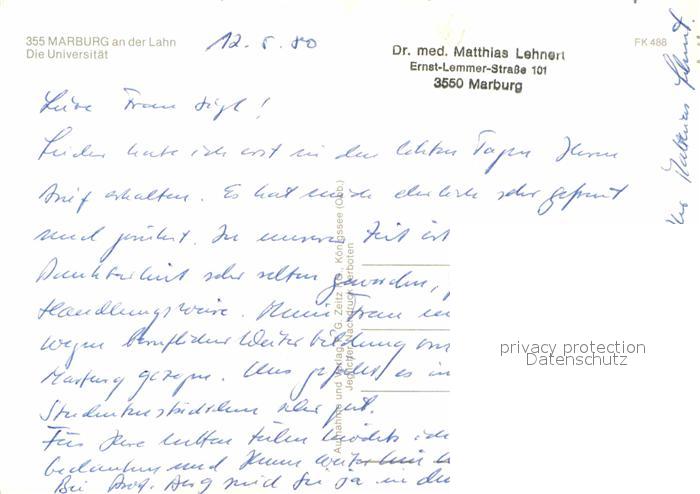 355 MARBURG an der Lahn
Die Universität
12.5.80
Dr. med. Matthias Lehnert
Ernst-Lemmer-Straße 101
3550 Marburg
FK 488
Liebe Frau Sigl!
Leider habe ich erst in den letzten Tagen Ihren
Brief erhalten. Es hat mich ehrlich sehr gefreut
und gerührt. In unserer Zeit ist
Dankbarkeit sehr selten geworden,
Handlungsweise. Meine Frau
wegen beruflicher Weiterbildung
Marburg gezogen. Uns gefällt es in
Studentenstädtchen sehr gut.
Für Ihre netten Zeilen möchte ich
bedanken und Ihnen weiterhin
Bei Prof. sind Sie ja in den
Ihr Matthias Lehnert.
Aufnahme und Verlag G. Zeitz KG., Königssee (Obb.)
Jeglicher Nachdruck verboten
privacy protection
Datenschutz